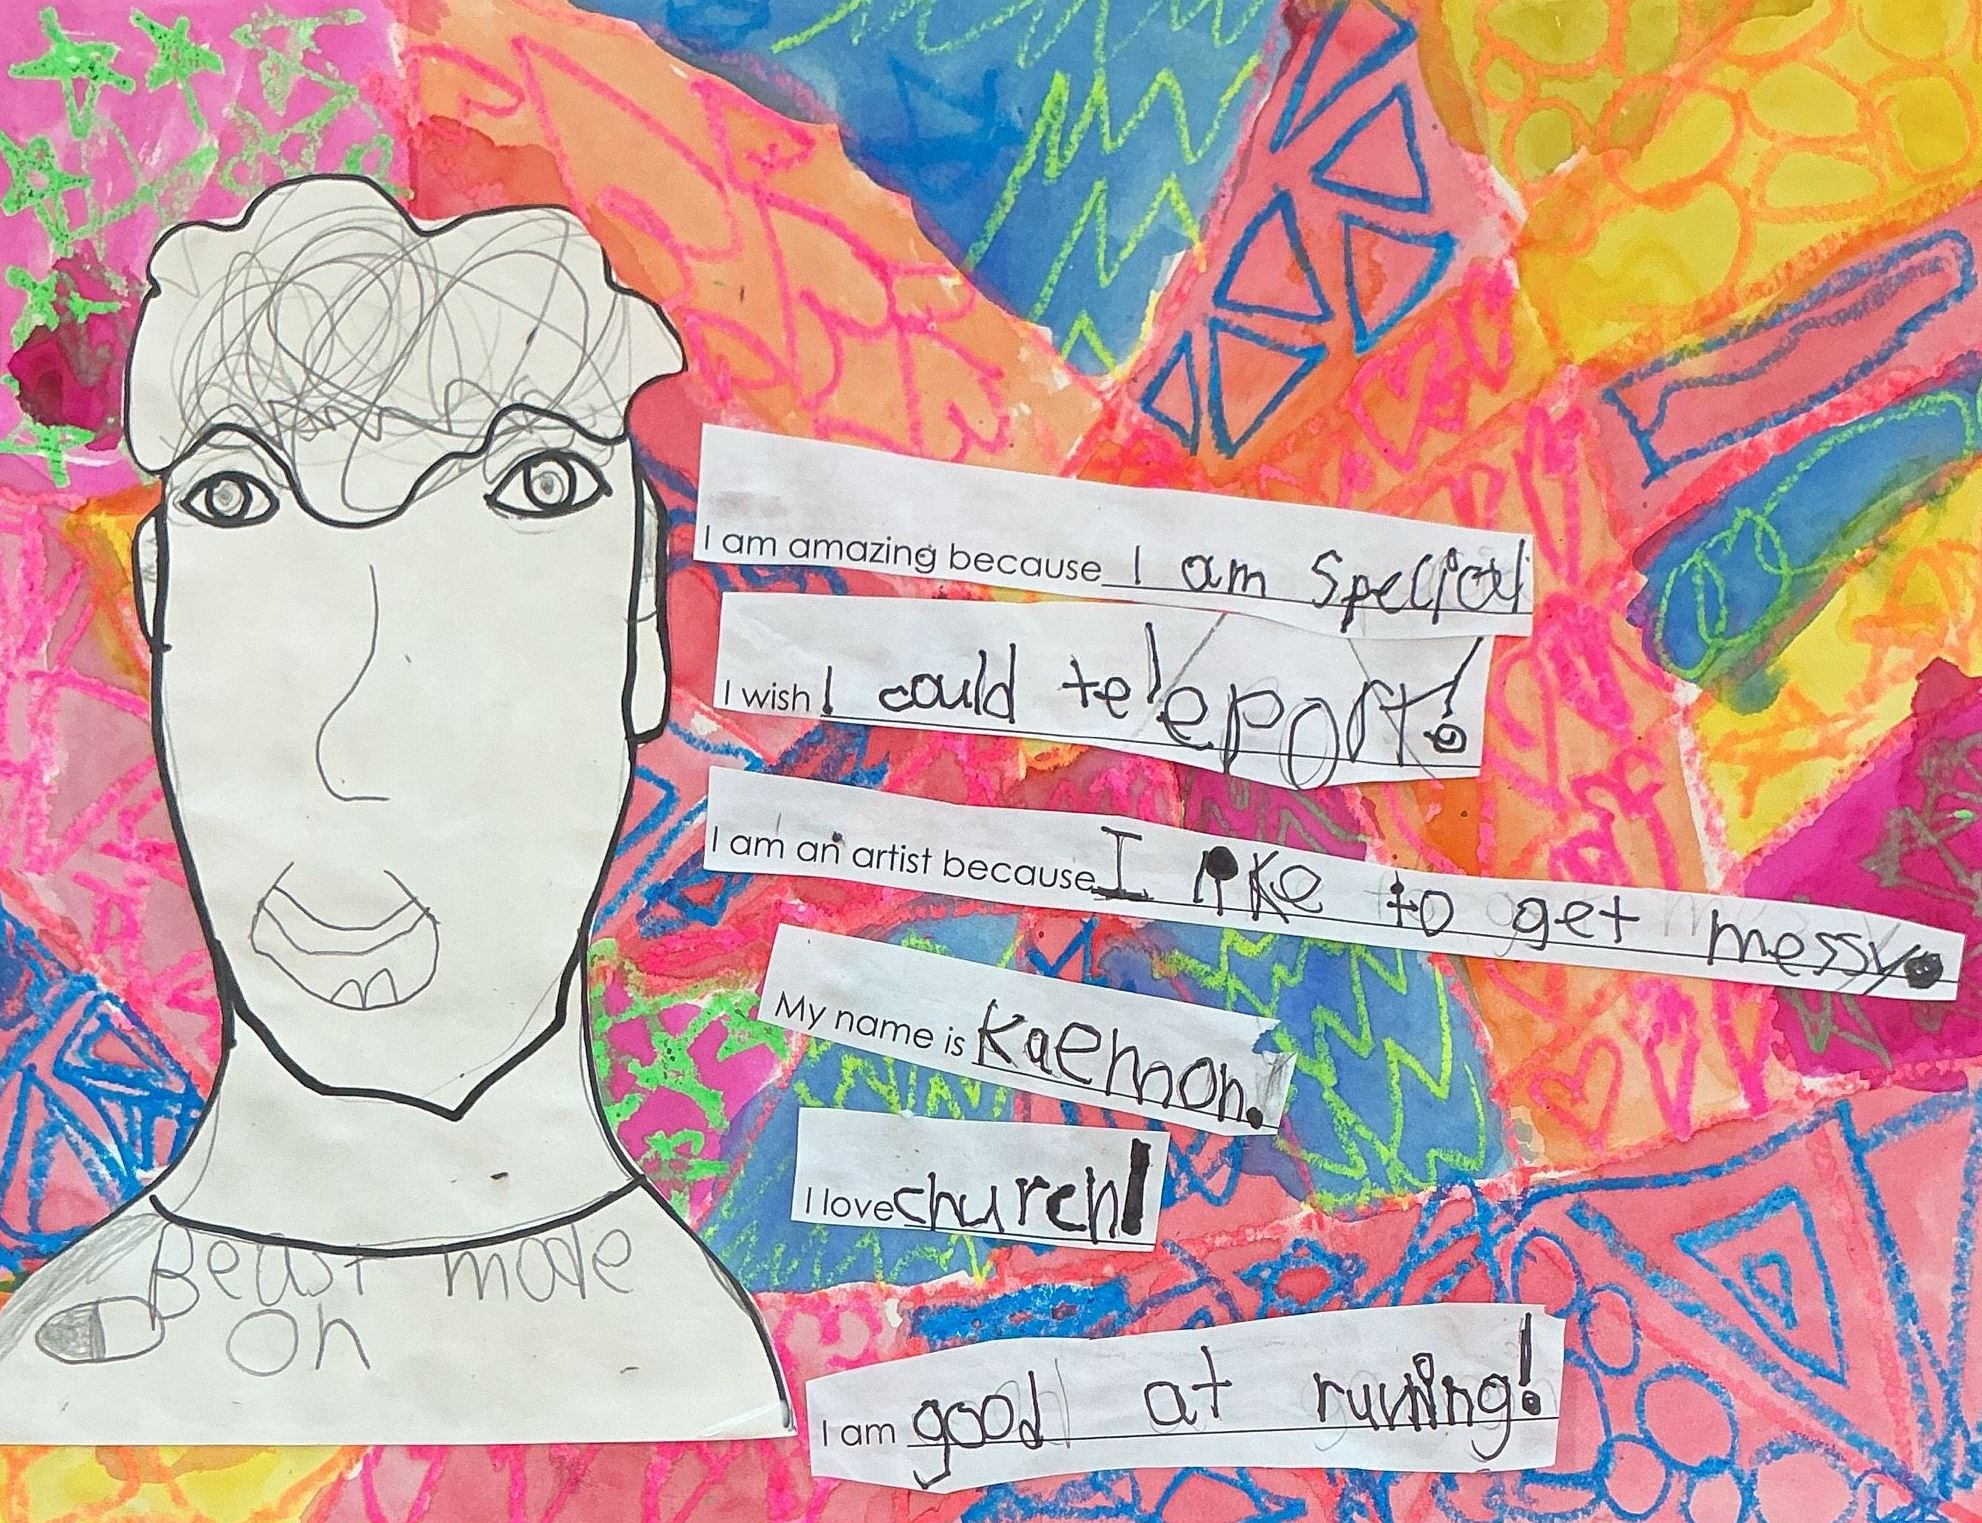 I am amazing because I am special
I wish I could teleport!
I am an artist because I like to get messy.
My name is Kaemon.
I love church!
I am good at running!
Beast mode
On